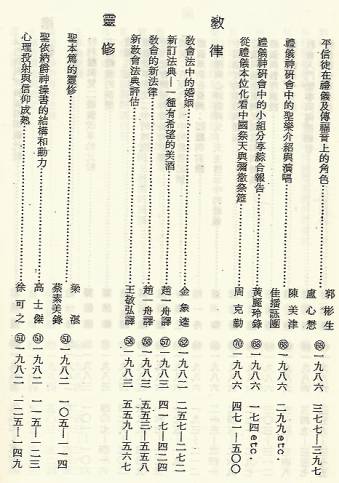 平信徒在禮儀及傳福音上的角色……郭彬生 盧心懋 ㊻ 一九八六 三七七—三九七
禮儀神研會中的聖樂介紹與演唱……陳美津 佳播詠團 一九八六 二九九 etc.
禮儀神研會中的小組分享綜合報告……黃麗玲錄 一九八六 一七四 etc.
從禮儀本位化看中國祭天與彌撒祭筵……周克勤 ⑦⓪ 一九八六 四七一—五〇〇
教律
教會法中的婚姻……金象逵 一九八二 二五七—二七二
新訂法典—一種有希望的美酒……趙一舟譯 一九八三 四一七—四二四
教會的新法律……趙一舟譯 一九八三 五五三—五五八
新教會法典評估……王敬弘譯 一九八三 五五九—五六七
靈修
聖本篤的靈修……梁漲 蔡素美錄 一九八二 一〇五—一一四
聖依納爵神操書的結構和動力……高士傑 一九八二 一一五—一二三
心理投射與信仰成熟……徐可之 一九八二 一二五—一四九